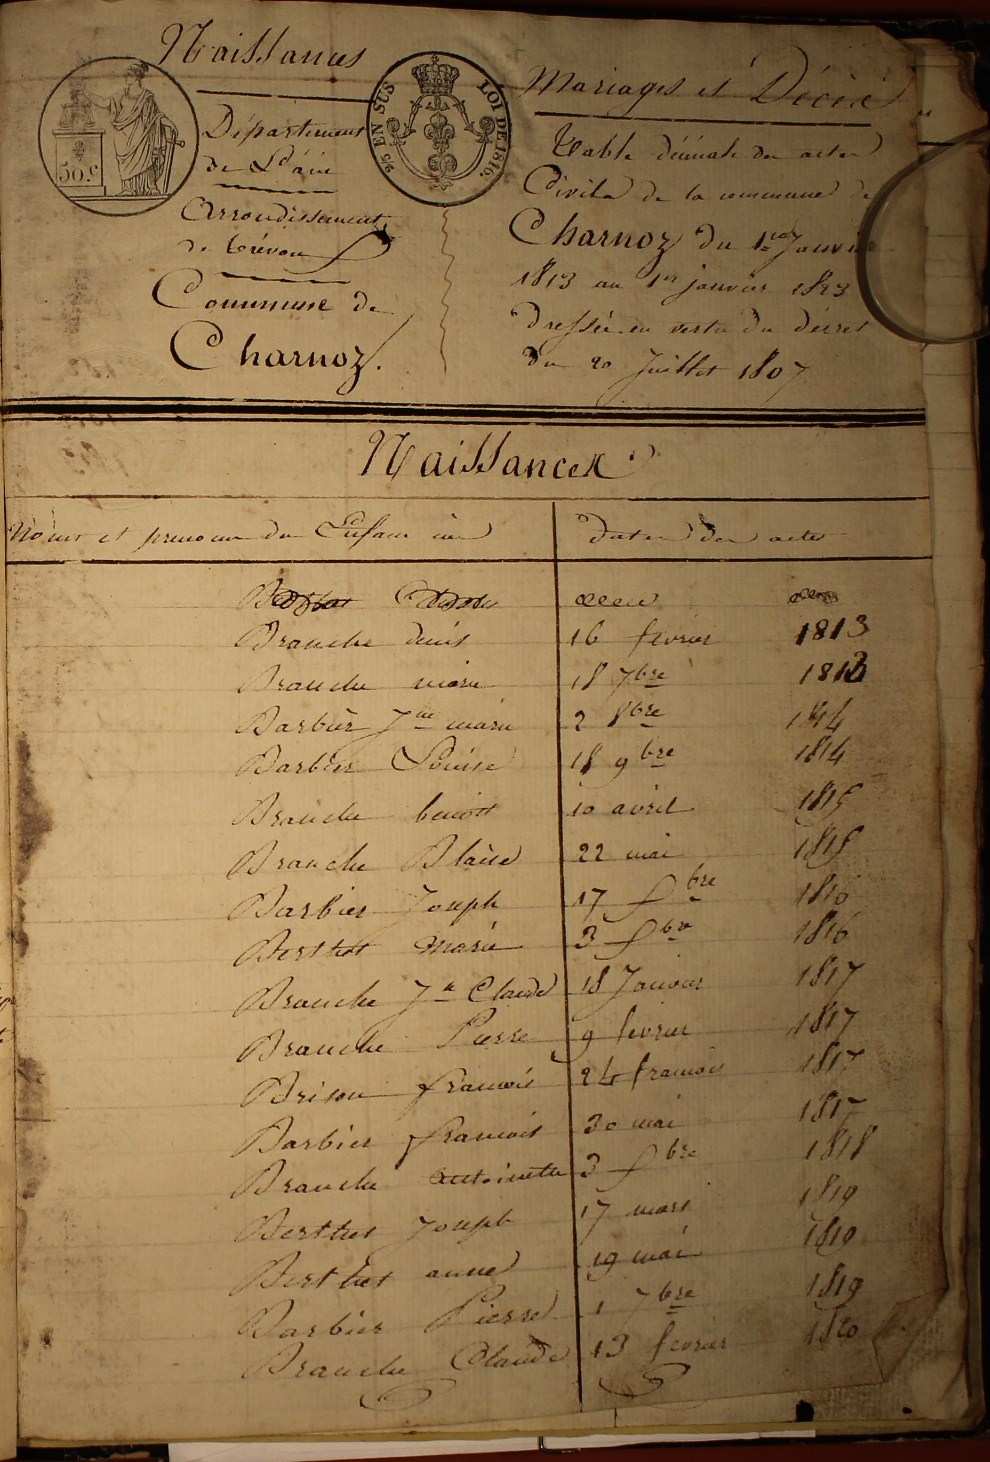 Naissances
Mariages et Décès
50.c
25 EN SUS LOI DE 1816
Département
de L'ain
Arrondissement
de trévoux
Commune de
Charnoz.
Table décénale des actes
Civils de la commune de
Charnoz du 1er Janvier
1813 au 1er janvier 1823
Dressée en vertu du décret
du 20 Juillet 1807
Naissances
Noms et prenoms des Enfans nés
dates des actes
Branche denis 16 fevrier 1813
Branche marie 18 7bre 1813
Barbier Jne marie 2 8bre 1814
Barbier Louise 18 9bre 1814
Branche benoit 10 avril 1815
Branche Blaise 22 mai 1815
Barbier Joseph 17 bre 1816
Berthet Marie 3 bre 1816
Branche Jn Claude 18 Janvier 1817
Branche Pierre 9 fevrier 1817
Brison francois 24 francois 1817
Barbier francois 30 mai 1817
Branche antoinette 3 bre 1818
Berthet Joseph 17 mars 1819
Berthet anne 19 mai 1819
Barbier Pierre 1 7bre 1819
Branche Claude 13 fevrier 1820